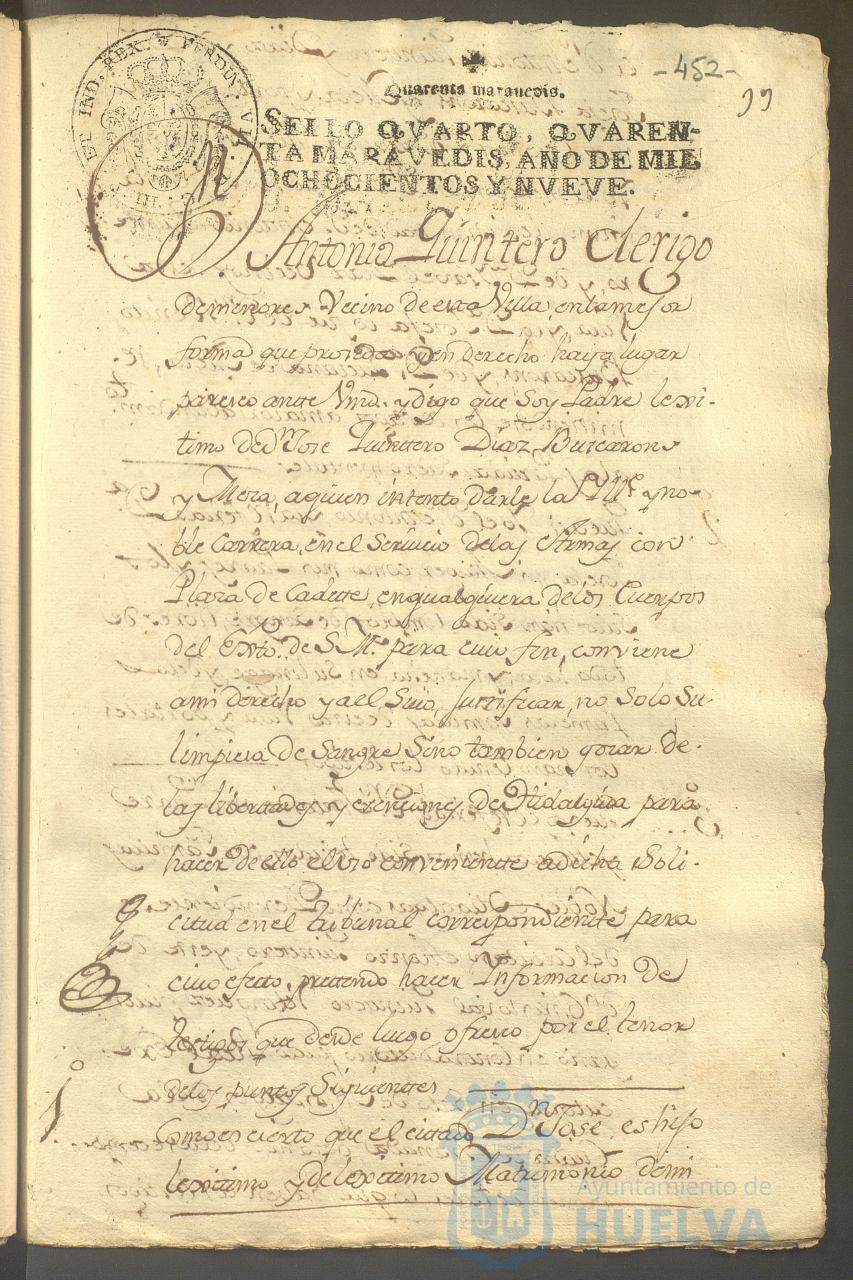 -452-
99
FERDIN. VII. D. G. HISP. ET IND. REX.
Quarenta marauedis.
SELLO QVARTO, QVAREN-
TA MARAVEDIS, AÑO DE MIL
OCHOCIENTOS Y NVEVE.
Dn Antonio Quintero Clerigo
de menores Vecino de esta Villa en la mejor
forma que proseda y en derecho haya lugar
paresco ante Vmd. y digo que Soy Padre lexi-
timo de Dn Jose Quintero Diaz Buiearons
y Mora, a quien intento darle la Ille y no-
ble Carrera, en el Servicio de las Armas con
Plaza de Cadete, en qualquiera de los Cuerpos
del Exto. de S. M. para cuio fin, conviene
a mi derecho y a el Suio, justificar, no Solo Su
limpiesa de Sangre Sino tambien gosar de
las libertades y esenciones de Hidalguia para
hacer de ello el uso conveniente a dicha Soli-
citud en el tribunal correspondiente para
cuio efecto, pretendo hacer Informacion de
testigos que desde luego ofresco por el tenor
de los puntos Siguientes
1º
Como es cierto que el citado Dn Jose, es hijo
lexitimo y de lexitimo Matrimonio de mi
Ayuntamiento de
HUELVA